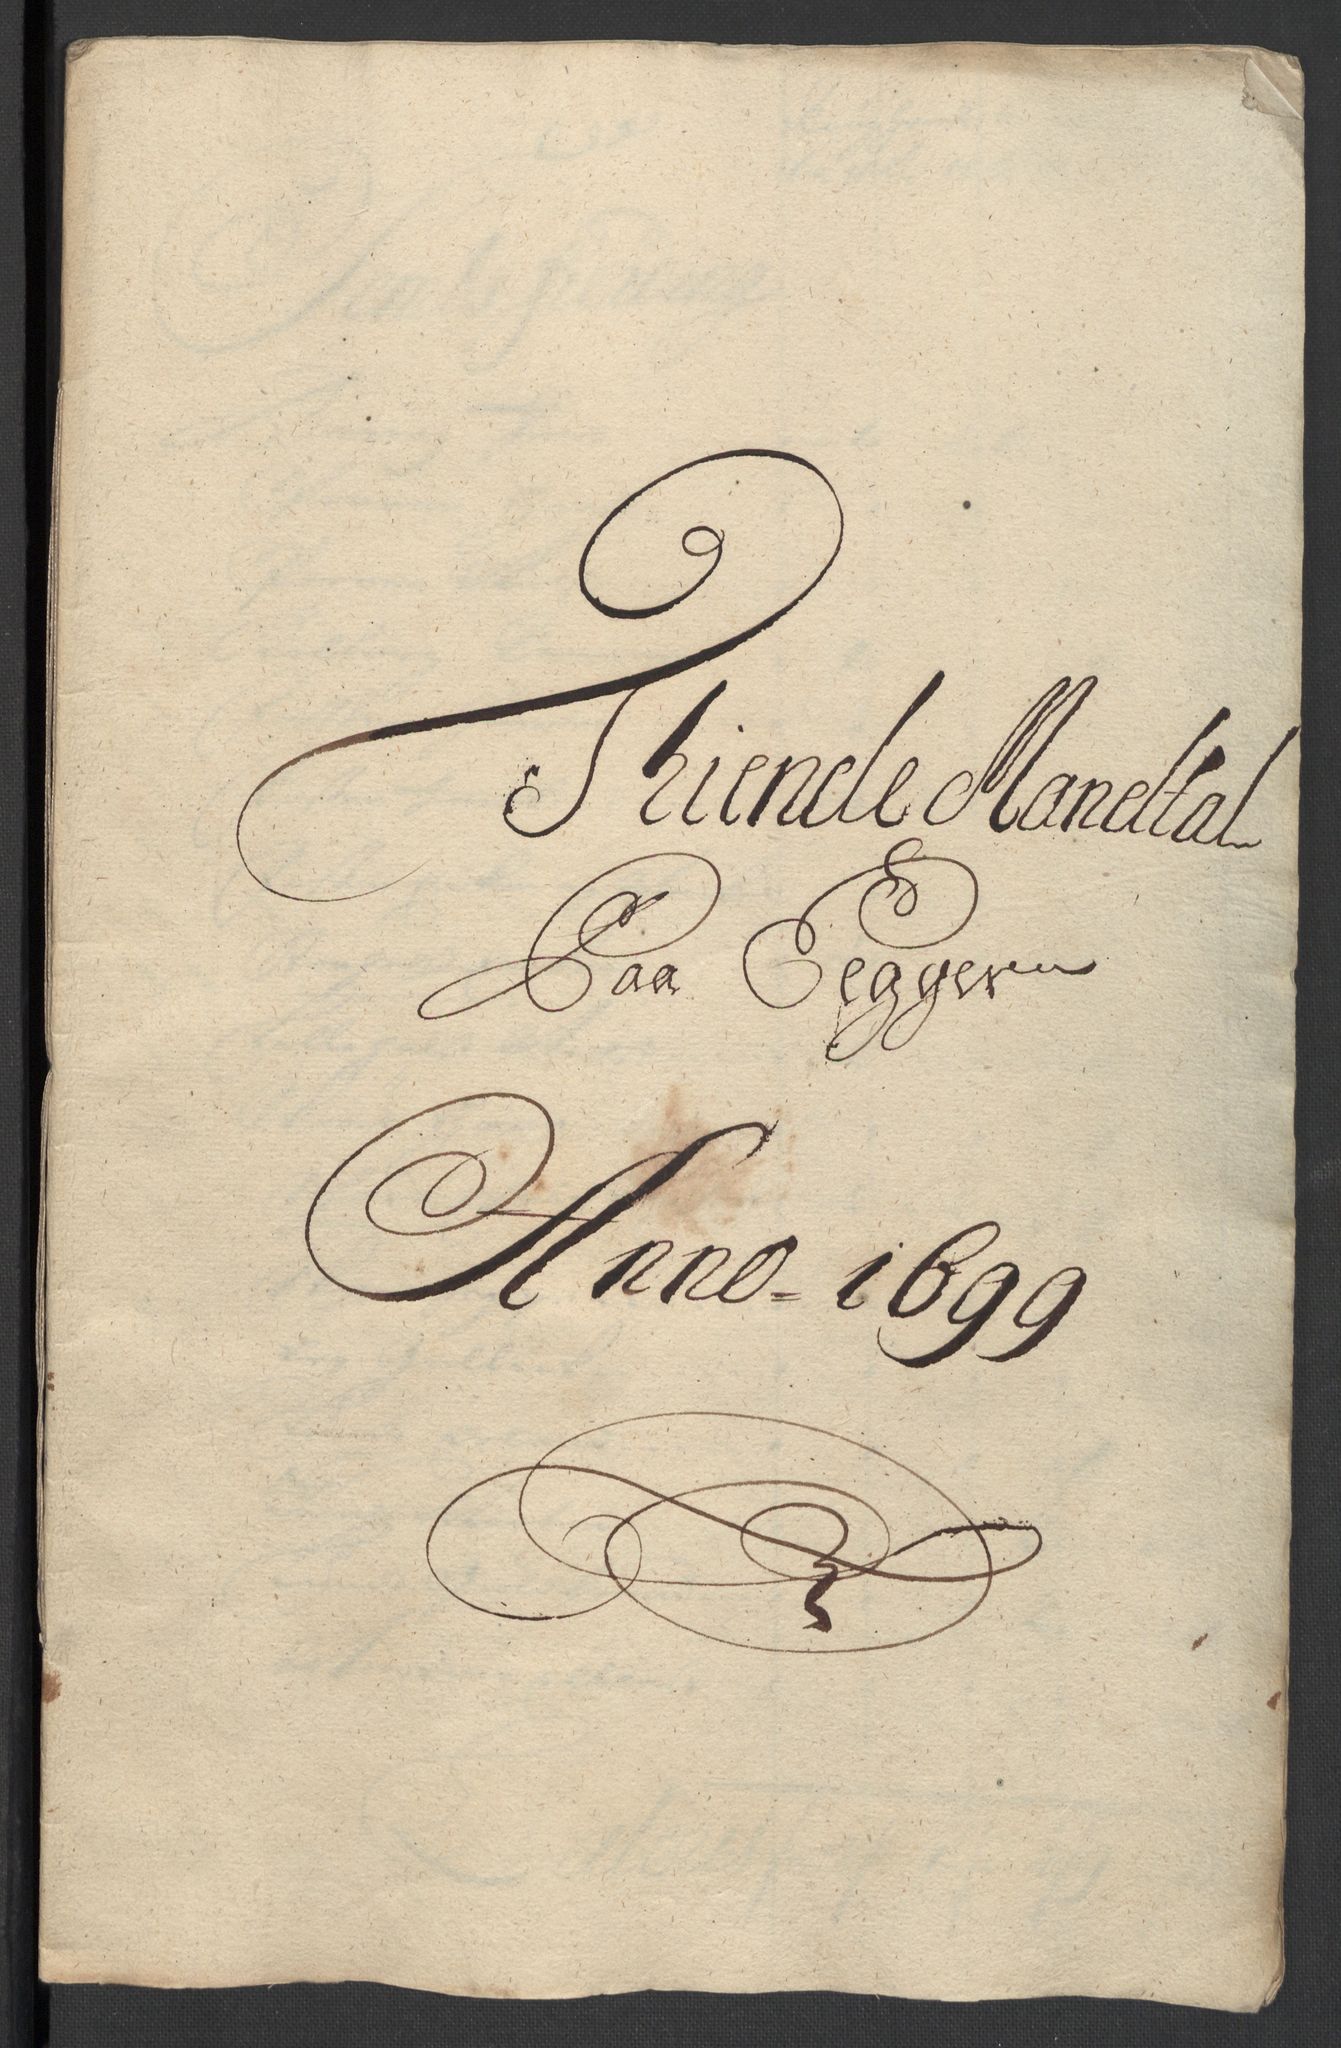 Thiende Mandtal
Paa Eegger
Anno = 1699